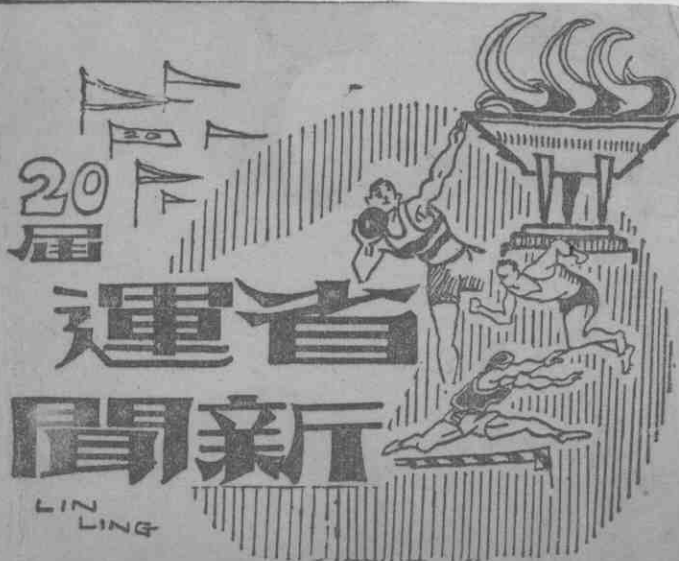 20
20
屆
省運
新聞
LIN
LING